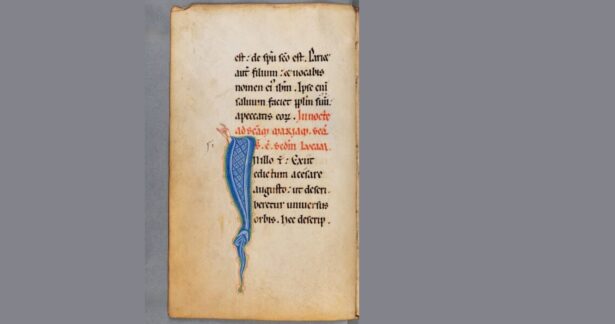 est : de spū scō est. Pariet
aut̄ filium : & uocabis
nomen eius ihm̄. Ipse eni
saluum faciet pplm̄ suū.
a peccatis eorꝝ. In nocte
ad scām mariam. Seq̄.
S. e. Sedm̄ lucam.
In illo t̄ : Exiit
edictum a cesare
augusto : ut descri
beretur uniuersus
orbis. Hec descrip